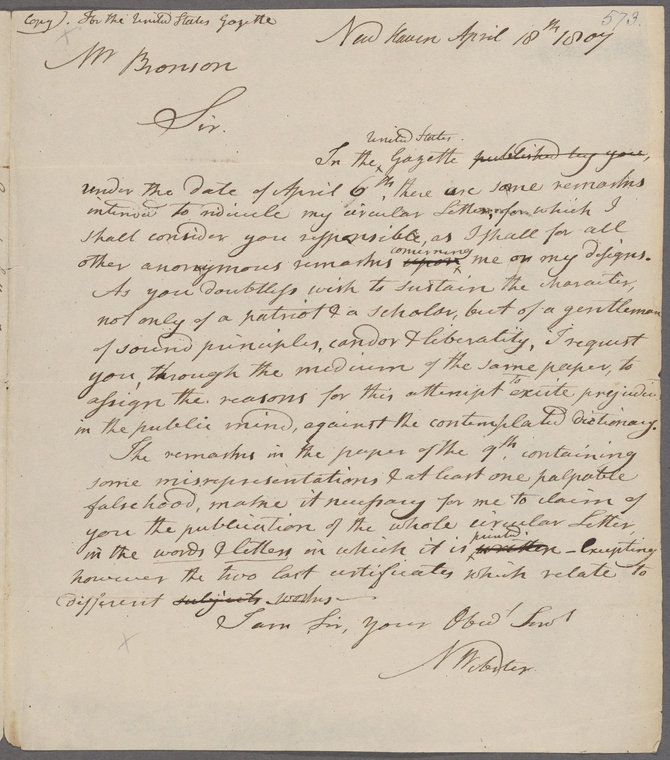 Copy). For the United States Gazette
573.
New Haven April 18th 1807
Mr Bronson
Sir.
United States
In the Gazette published by you,
under the date of April 6th, there are some remarks
intended to ridicule my circular Letter, for which I
shall consider you responsible, as I shall for all
concerning
other anonymous remarks upon me or my designs.
As you doubtless wish to sustain the character,
not only of a patriot & a scholar, but of a gentleman
of sound principles, candor & liberality, I request
you, through the medium of the same paper, to
assign the reasons for this attempt to excite prejudice
in the public mind, against the contemplated dictionary.
The remarks in the paper of the 9th, containing
some misrepresentations & at least one palpable
falsehood, make it necessary for me to claim of
you the publication of the whole circular Letter,
printed
in the words & letters in which it is written - Excepting
however the two last certificates which relate to
different subjects works
I am Sir, your Obedt Servt
N Webster.